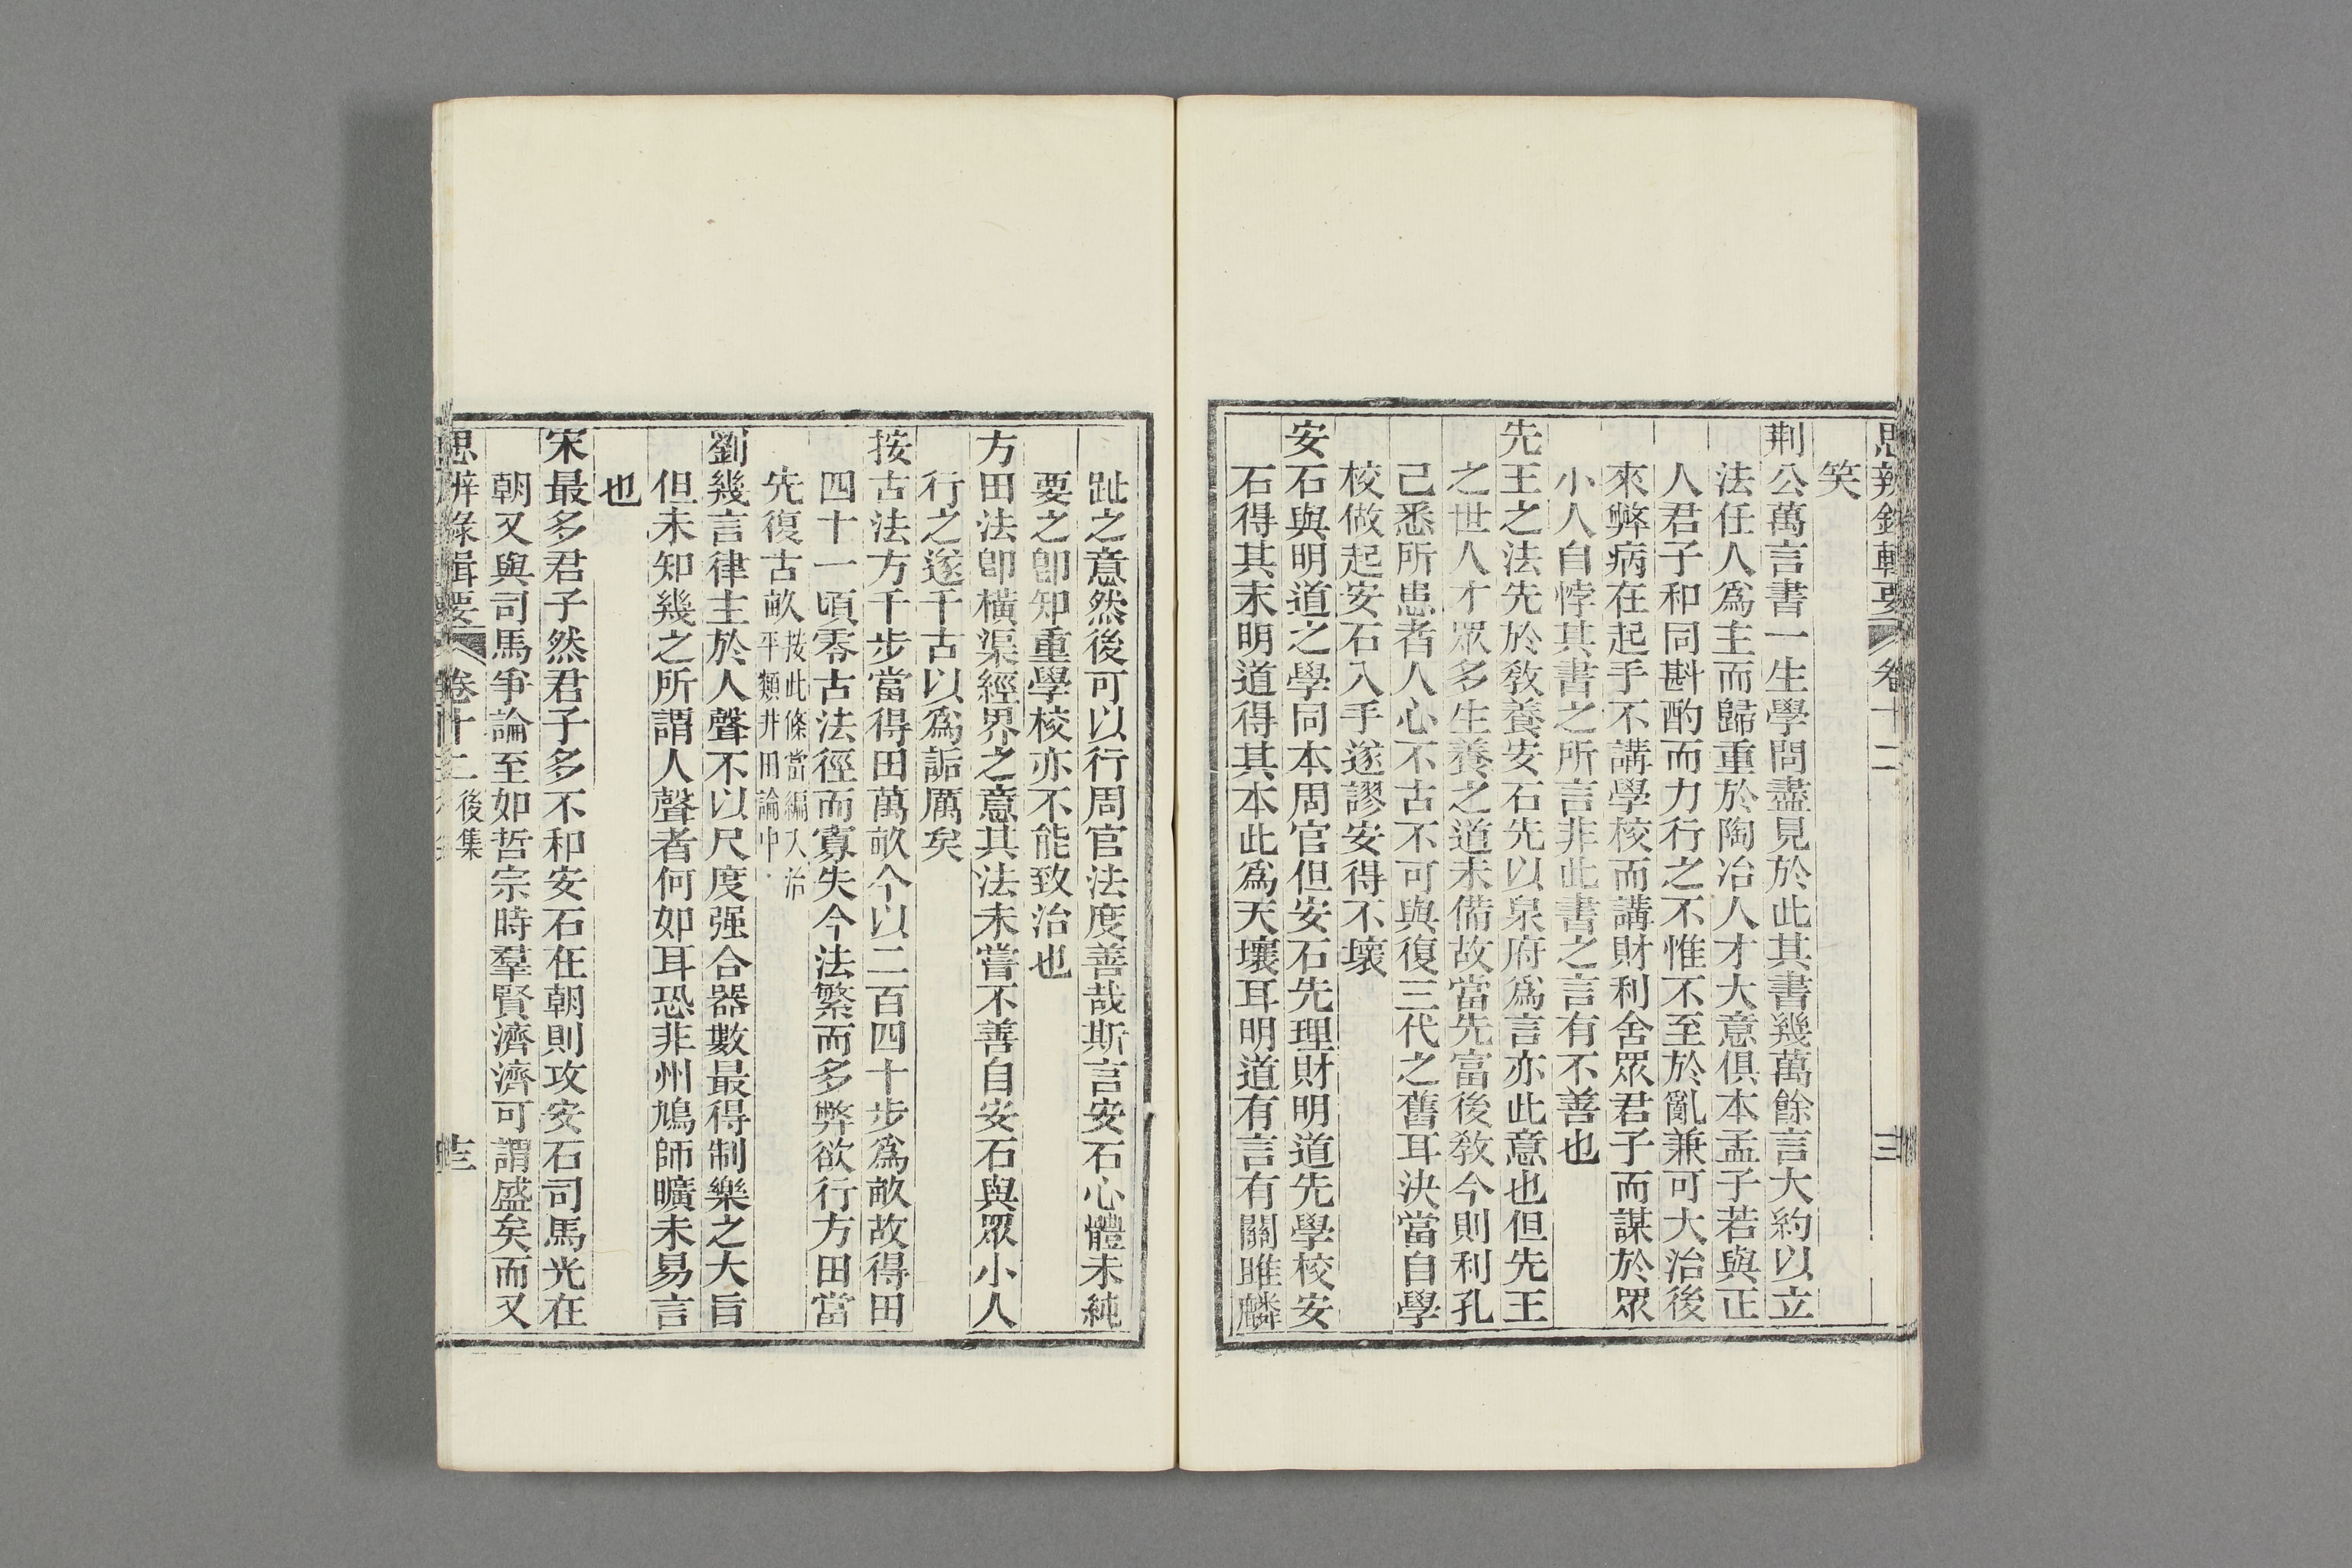 思辨錄輯要 卷十二 三
笑
荆公萬言書一生學問盡見於此其書幾萬餘言大約以立
法任人爲主而歸重於陶冶人才大意俱本孟子若與正
人君子和同斟酌而力行之不惟不至於亂兼可大治後
來弊病在起手不講學校而講財利舍眾君子而謀於眾
小人自悖其書之所言非此書之言有不善也
先王之法先於敎養安石先以泉府爲言亦此意也但先王
之世人才眾多生養之道未備故當先富後敎今則利孔
己悉所患者人心不古不可與復三代之舊耳決當自學
校做起安石入手遂謬安得不壞
安石與明道之學同本周官但安石先理財明道先學校安
石得其末明道得其本此爲天壤耳明道有言有關雎麟
趾之意然後可以行周官法度善哉斯言安石心體未純
要之卽知重學校亦不能致治也
方田法卽橫渠經界之意其法未嘗不善自安石與眾小人
行之遂千古以爲詬厲矣
按古法方千步當得田萬畝今以二百四十步爲畝故得田
四十一頃零古法徑而寡失今法繁而多弊欲行方田當
先復古畝按此條當編入治
平類井田論中
劉幾言律主於人聲不以尺度强合器數最得制樂之大旨
但未知幾之所謂人聲者何如耳恐非州鳩師曠未易言
也
宋最多君子然君子多不和安石在朝則攻安石司馬光在
朝又與司馬爭論至如哲宗時羣賢濟濟可謂盛矣而又
思辨錄輯要 卷十二 後集